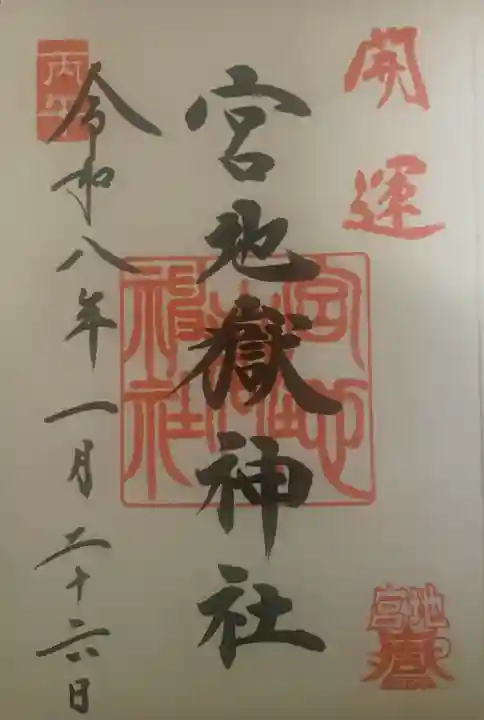 開運
宮地嶽神社
宮地嶽神社
丙午
令和八年一月二十六日